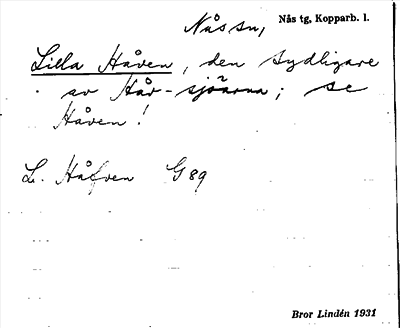 Nås sn, Nås tg, Kopparb. l.
Lilla Håven, den sydligare
av Hår-sjöarna; se
Håven!
L. Håfven G 89
Bror Lindén 1931